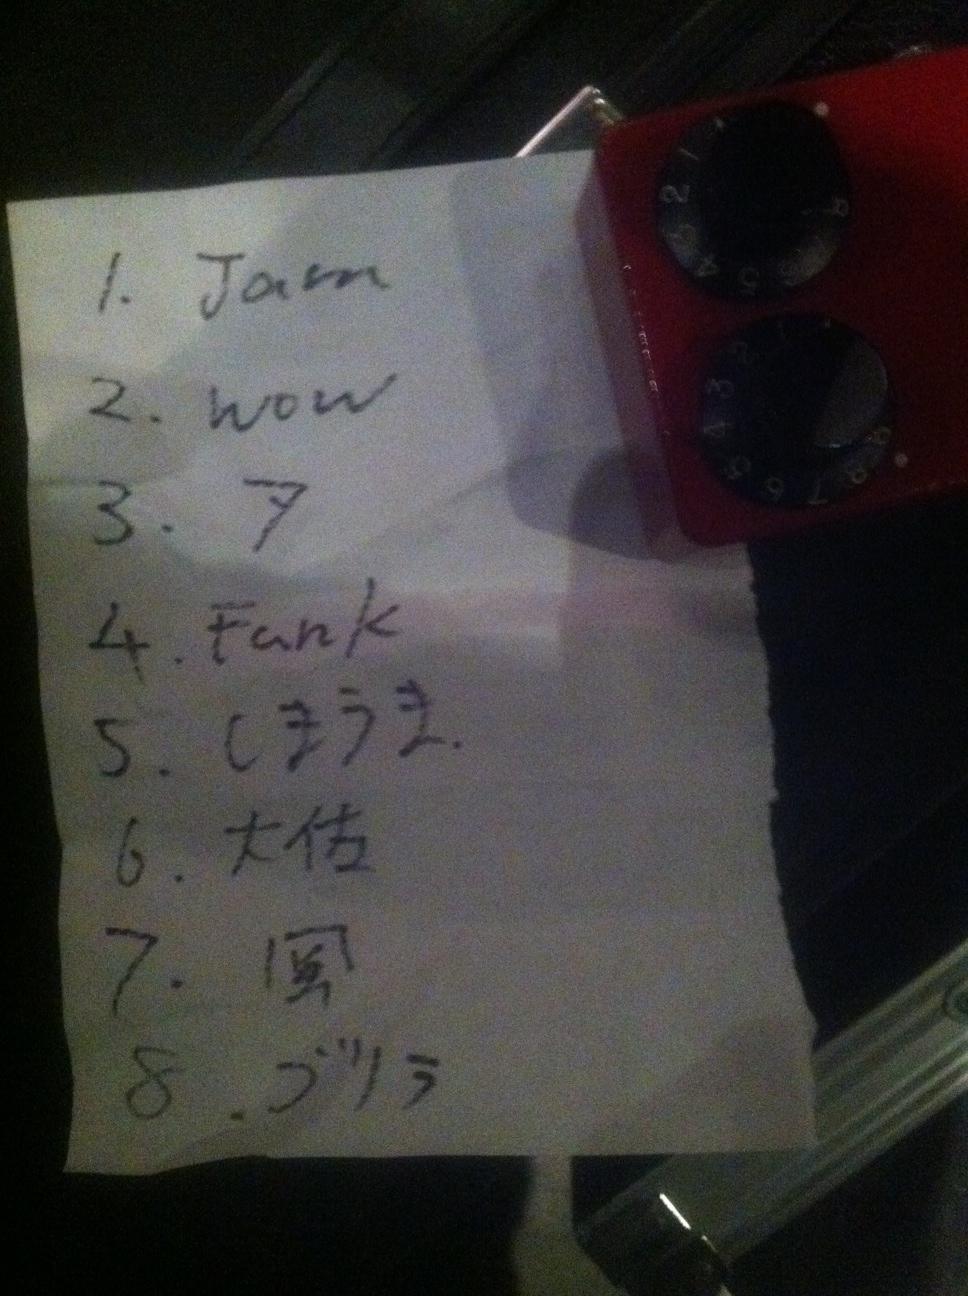 1. Jam
2. wow
3. ア
4. Funk
5. しまうま.
6. 大佑
7. 風
8. ゴリラ
1 2 3 4 5 6 9
1 2 3 4 5 6 7 8 9